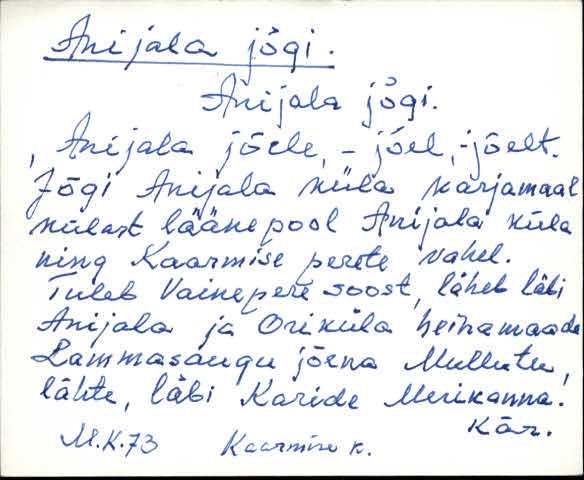 Anijala jõgi.
Anijala jõgi.
, Anijala jõele, - jõel, -jõelt.
Jõgi Anijala küla karjamaal
külast läänepool Anijala küla
ning Kaarmise perete vahel.
Tuleb Vainepere soost, läheb läbi
Anijala ja Oriküla heinamaade
Lammasaugu jõena Mullutu,
lähte, läbi Karide Merikanna.
Kär.
M.K.73 Kaarmise k.